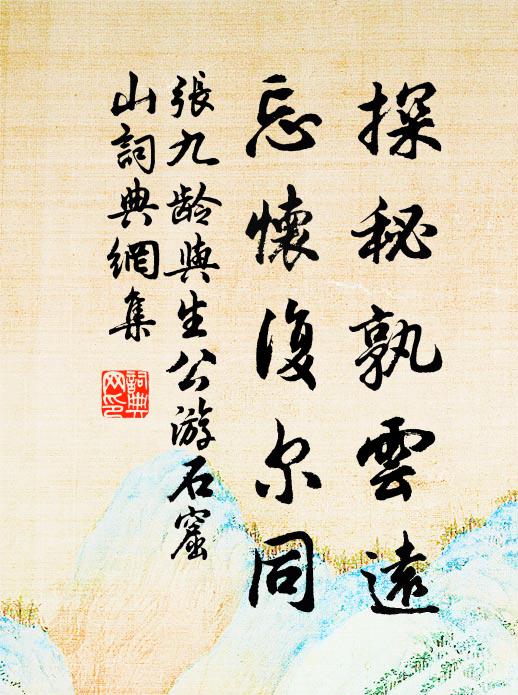 探秘孰雲遠
忘懷復尔同
張九齡與生公游石窟
山詞典網集
詞典
网印